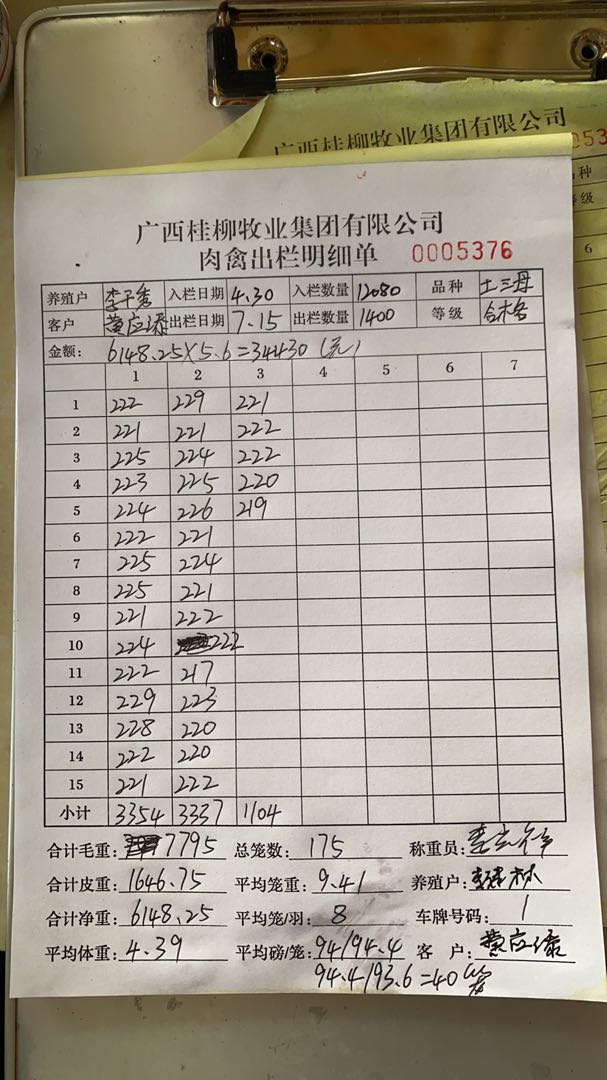 广西桂柳牧业集团有限公司 053
品种
等级
6
广西桂柳牧业集团有限公司
肉禽出栏明细单 0005376
养殖户 李子秀 入栏日期 4.30 入栏数量 12080 品种 土三母
客户 黄应添 出栏日期 7.15 出栏数量 1400 等级 合格
金额: 6148.25X5.6=34430(元)
1 2 3 4 5 6 7
1 222 229 221
2 221 221 222
3 225 224 222
4 223 225 220
5 224 226 219
6 222 221
7 225 224
8 225 221
9 221 222
10 224 222
11 222 217
12 229 223
13 228 220
14 222 220
15 221 222
小计 3354 3337 1104
合计毛重: 7795 总笼数: 175 称重员:
合计皮重: 1646.75 平均笼重: 9.41 养殖户:
合计净重: 6148.25 平均笼/羽: 8 车牌号码: 1
平均体重: 4.39 平均磅/笼: 94/94.4 客户: 黄应添
94.4/93.6=40